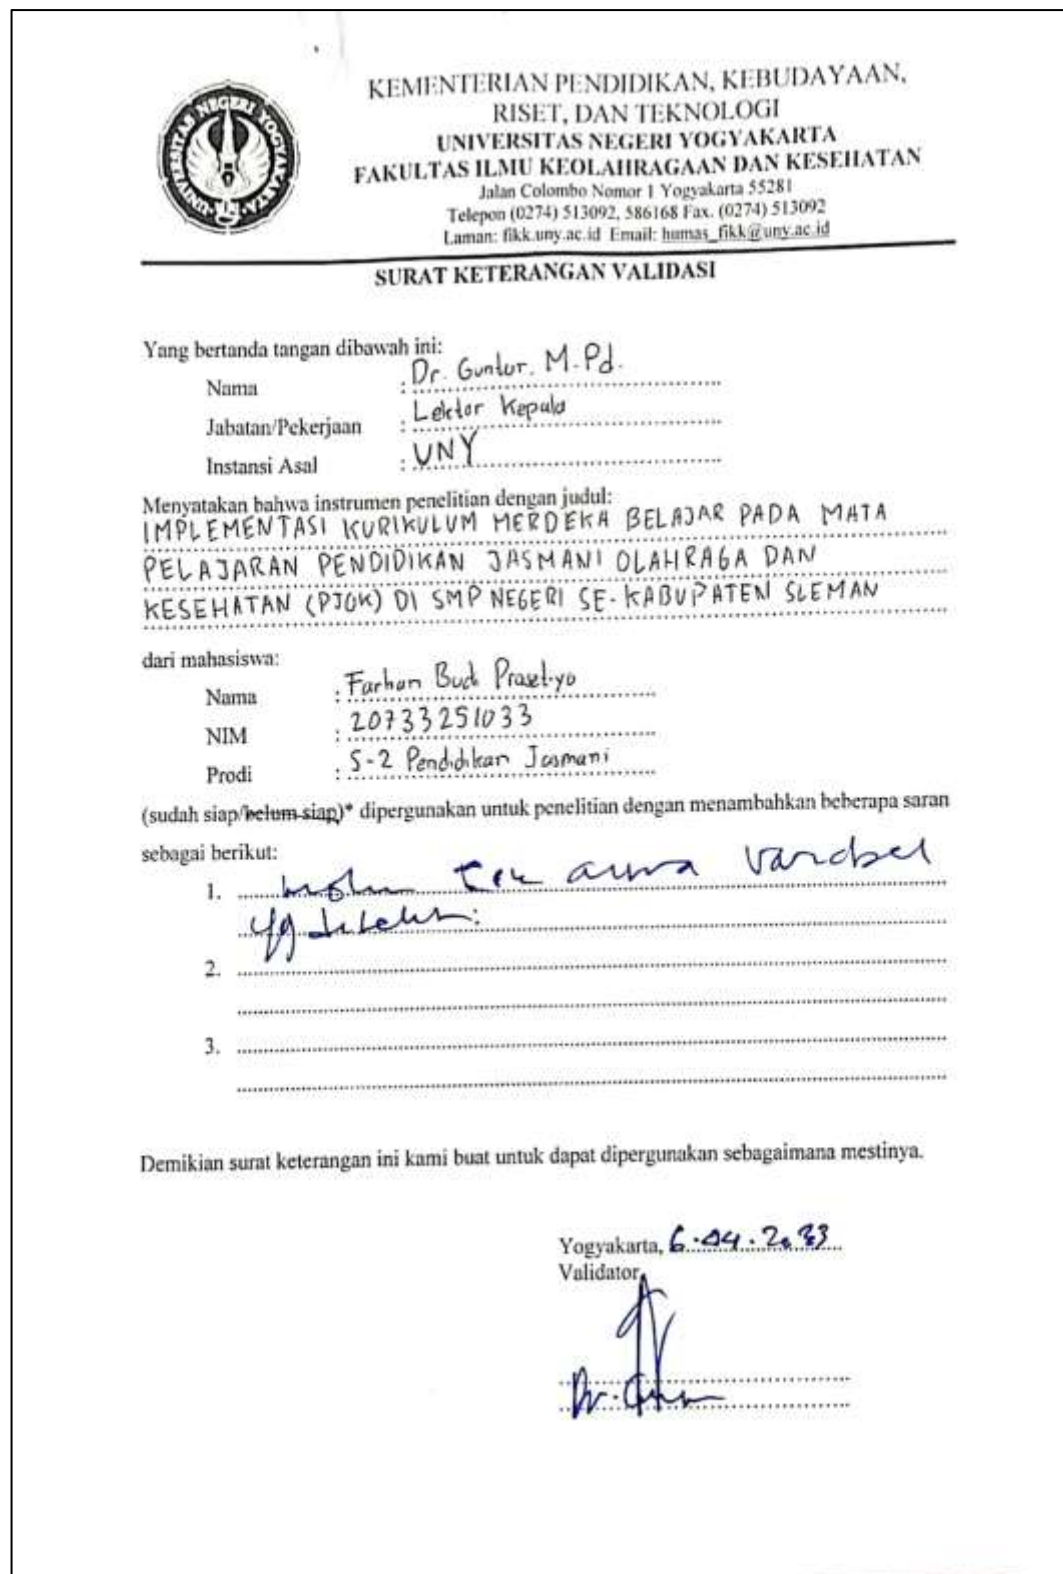 UNIVERSITAS NEGERI YOGYAKARTA
KEMENTERIAN PENDIDIKAN, KEBUDAYAAN,
RISET, DAN TEKNOLOGI
UNIVERSITAS NEGERI YOGYAKARTA
FAKULTAS ILMU KEOLAHRAGAAN DAN KESEHATAN
Jalan Colombo Nomor 1 Yogyakarta 55281
Telepon (0274) 513092, 586168 Fax. (0274) 513092
Laman: fikk.uny.ac.id Email: humas_fikk@uny.ac.id
SURAT KETERANGAN VALIDASI
Yang bertanda tangan dibawah ini:
Nama : Dr. Guntur. M.Pd.
Jabatan/Pekerjaan : Lektor Kepala
Instansi Asal : UNY
Menyatakan bahwa instrumen penelitian dengan judul:
IMPLEMENTASI KURIKULUM MERDEKA BELAJAR PADA MATA
PELAJARAN PENDIDIKAN JASMANI OLAHRAGA DAN
KESEHATAN (PJOK) DI SMP NEGERI SE-KABUPATEN SLEMAN
dari mahasiswa:
Nama : Farhan Budi Prasetyo
NIM : 20733251033
Prodi : S-2 Pendidikan Jasmani
(sudah siap/belum siap)* dipergunakan untuk penelitian dengan menambahkan beberapa saran
sebagai berikut:
1.
yg
2.
3.
Demikian surat keterangan ini kami buat untuk dapat dipergunakan sebagaimana mestinya.
Yogyakarta, 6.04.2023
Validator
Dr.